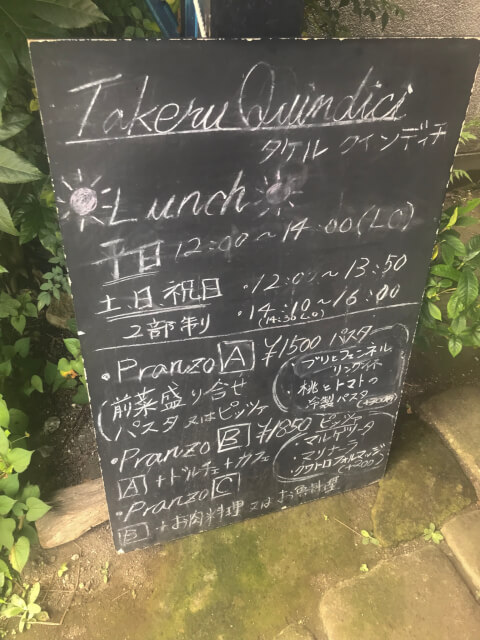 Takeru Quindici
タケル クインディチ
Lunch
平日 12:00～14:00(LO)
土日祝日 ・12:00～13:50
2部制 ・14:10～16:00
(14:30LO)
・Pranzo A ¥1500 パスタ
前菜盛り合せ
パスタ 又は ピッツァ
・ブリとフェンネル
リングイネ
・桃とトマトの
冷製パスタ
・Pranzo B ¥1850 ピッツァ
A + ドルチェ + カフェ
マルゲリータ
マリナーラ
クワトロフォルマッジ
(+200)
・Pranzo C
B + お肉料理 又は お魚料理